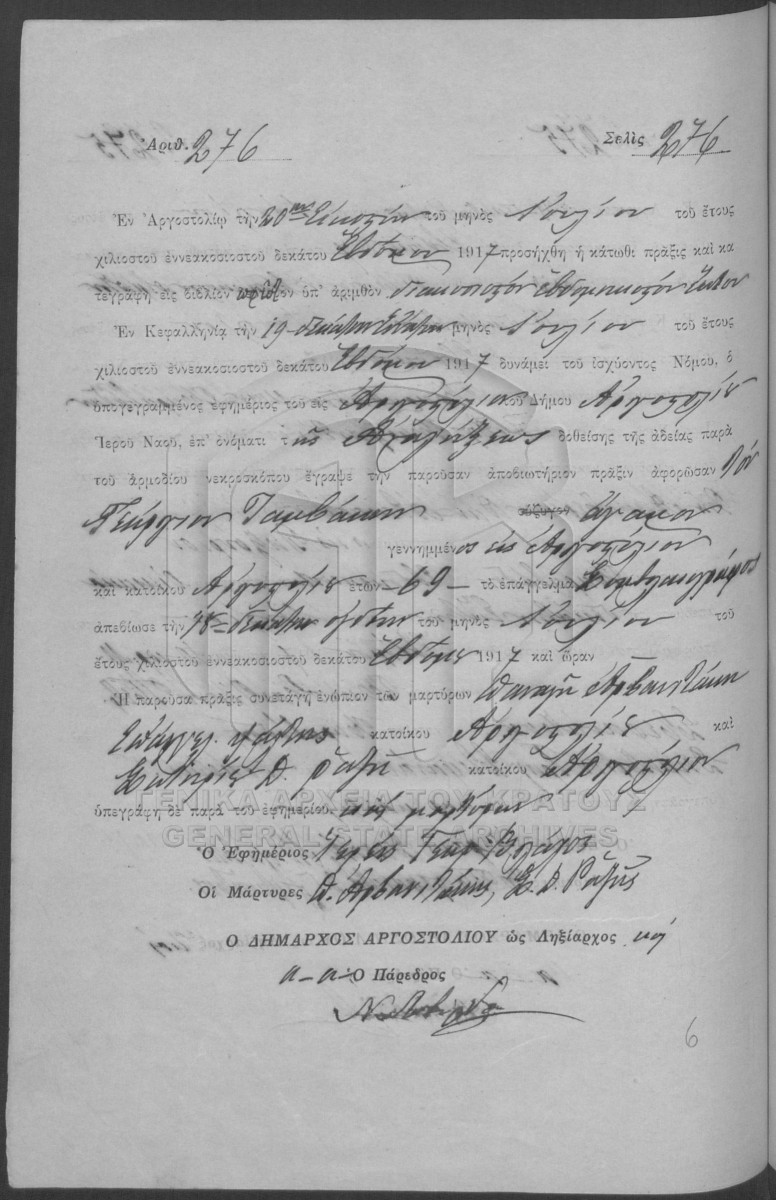 Ἀριθ. 276 Σελὶς 276
Ἐν Ἀργοστολίῳ τὴν 20ην Εἰκοστὴν τοῦ μηνὸς Ἰουλίου τοῦ ἔτους
χιλιοστοῦ ἐννεακοσιοστοῦ δεκάτου Ἑβδόμου 1917 προσήχθη ἡ κάτωθι πρᾶξις καὶ κα
τεγράφη εἰς βιβλίον ὑπ' ἀριθμὸν διακοσιοστὸν ἑβδομηκοστὸν ἕκτον
Ἐν Κεφαλληνίᾳ τὴν 19 δεκάτην ἐνάτην μηνὸς Ἰουλίου τοῦ ἔτους
χιλιοστοῦ ἐννεακοσιοστοῦ δεκάτου Ἑβδόμου 1917 δυνάμει τοῦ ἰσχύοντος Νόμου, ὁ
ὑπογεγραμμένος ἐφημέριος τοῦ εἰς Ἀργοστόλιον τοῦ Δήμου Ἀργοστολίου
Ἱεροῦ Ναοῦ, ἐπ' ὀνόματι τῆς Ἀναλήψεως δοθείσης τῆς ἀδείας παρὰ
τοῦ ἁρμοδίου νεκροσκόπου ἔγραψε τὴν παροῦσαν ἀποβιωτήριον πρᾶξιν ἀφορῶσαν τὸν
Γεώργιον Ταμβάκην σύζυγον ἄγαμον
γεννημμένος εἰς Ἀργοστόλιον
καὶ κατοίκου Ἀργοστολίου ἐτῶν 69 τὸ ἐπάγγελμα Συμβολαιογράφος
ἀπεβίωσε τὴν 18 δεκάτην ὀγδόην τοῦ μηνὸς Ἰουλίου τοῦ
ἔτους χιλιοστοῦ ἐννεακοσιοστοῦ δεκάτου Ἑβδόμου 1917 καὶ ὥραν
Ἡ παροῦσα πρᾶξις συνετάγη ἐνώπιον τῶν μαρτύρων Παναγῆ Ἀρβανιτάκη
ἐπάγγελ. ῥάπτης κατοίκου Ἀργοστολίου καὶ
Σωτηρίου Δ. Ῥάζῆ κατοίκου Ἀργοστολίου
ΓΕΝΙΚΑ ΑΡΧΕΙΑ ΤΟΥ ΚΡΑΤΟΥΣ
ὑπεγράφη δὲ παρὰ τοῦ ἐφημερίου καὶ μαρτύρων
GENERAL STATE ARCHIVES
Ὁ Ἐφημέριος Ἱερεὺς Γεωρ. Βλάχος
Οἱ Μάρτυρες Π. Ἀρβανιτάκης, Σ. Δ. Ῥάζῆς
Ο ΔΗΜΑΡΧΟΣ ΑΡΓΟΣΤΟΛΙΟΥ ὡς Ληξίαρχος
α–α Ὁ Πάρεδρος
6